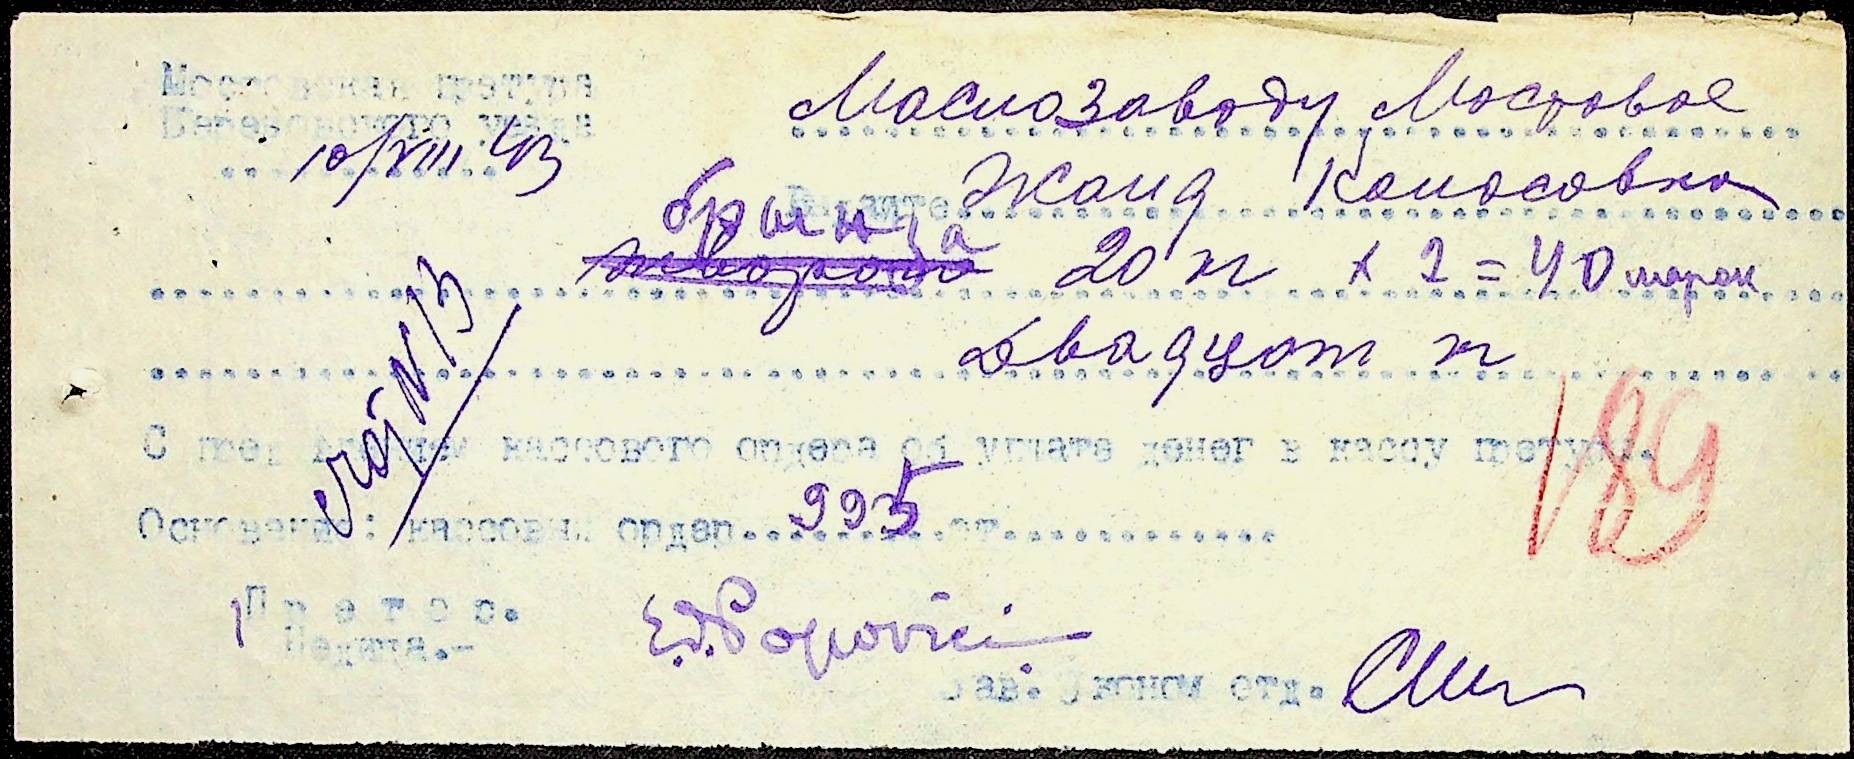 Мостовская претура
Березовского уезда
10/VIII 43
Маслозаводу Мостовое
Выдайте Жанд Колосовка
брынза
20 кг х 2 = 40 марок
Двадцат кг
N 13
С пред кассового ордера об уплате денег в кассу претуры.
Основание: кассовый ордер 995 от
Претор.
E.D. Popovici
Зав. Эконом отд.
189